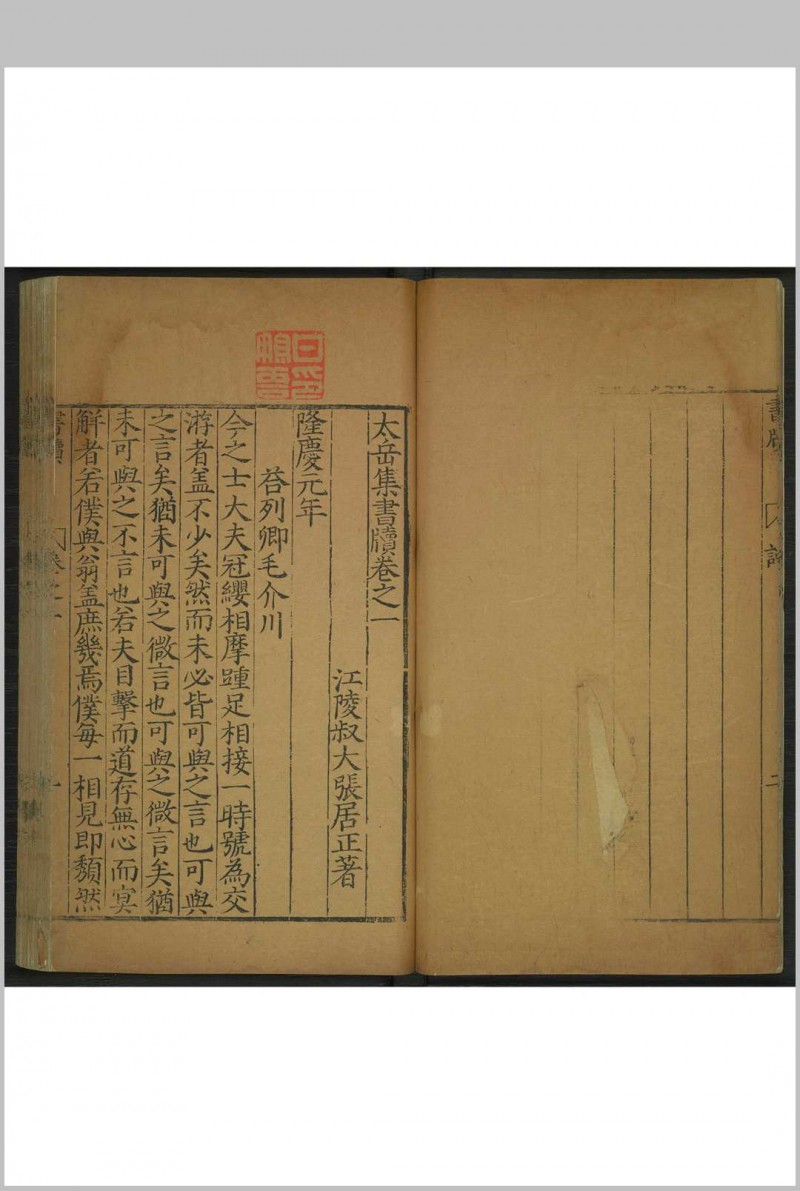 太岳集書牘卷之一
江陵叔大張居正著
隆慶元年
荅列卿毛介川
今之士大夫冠纓相摩踵足相接一時號為交
游者盖不少矣然而未必皆可與之言也可與
之言矣猶未可與之微言也可與之微言矣猶
未可與之不言也若夫目擊而道存無心而冥
解者若僕與翁盖庶幾焉僕每一相見即頽然
書牘
卷之一
一
書牘